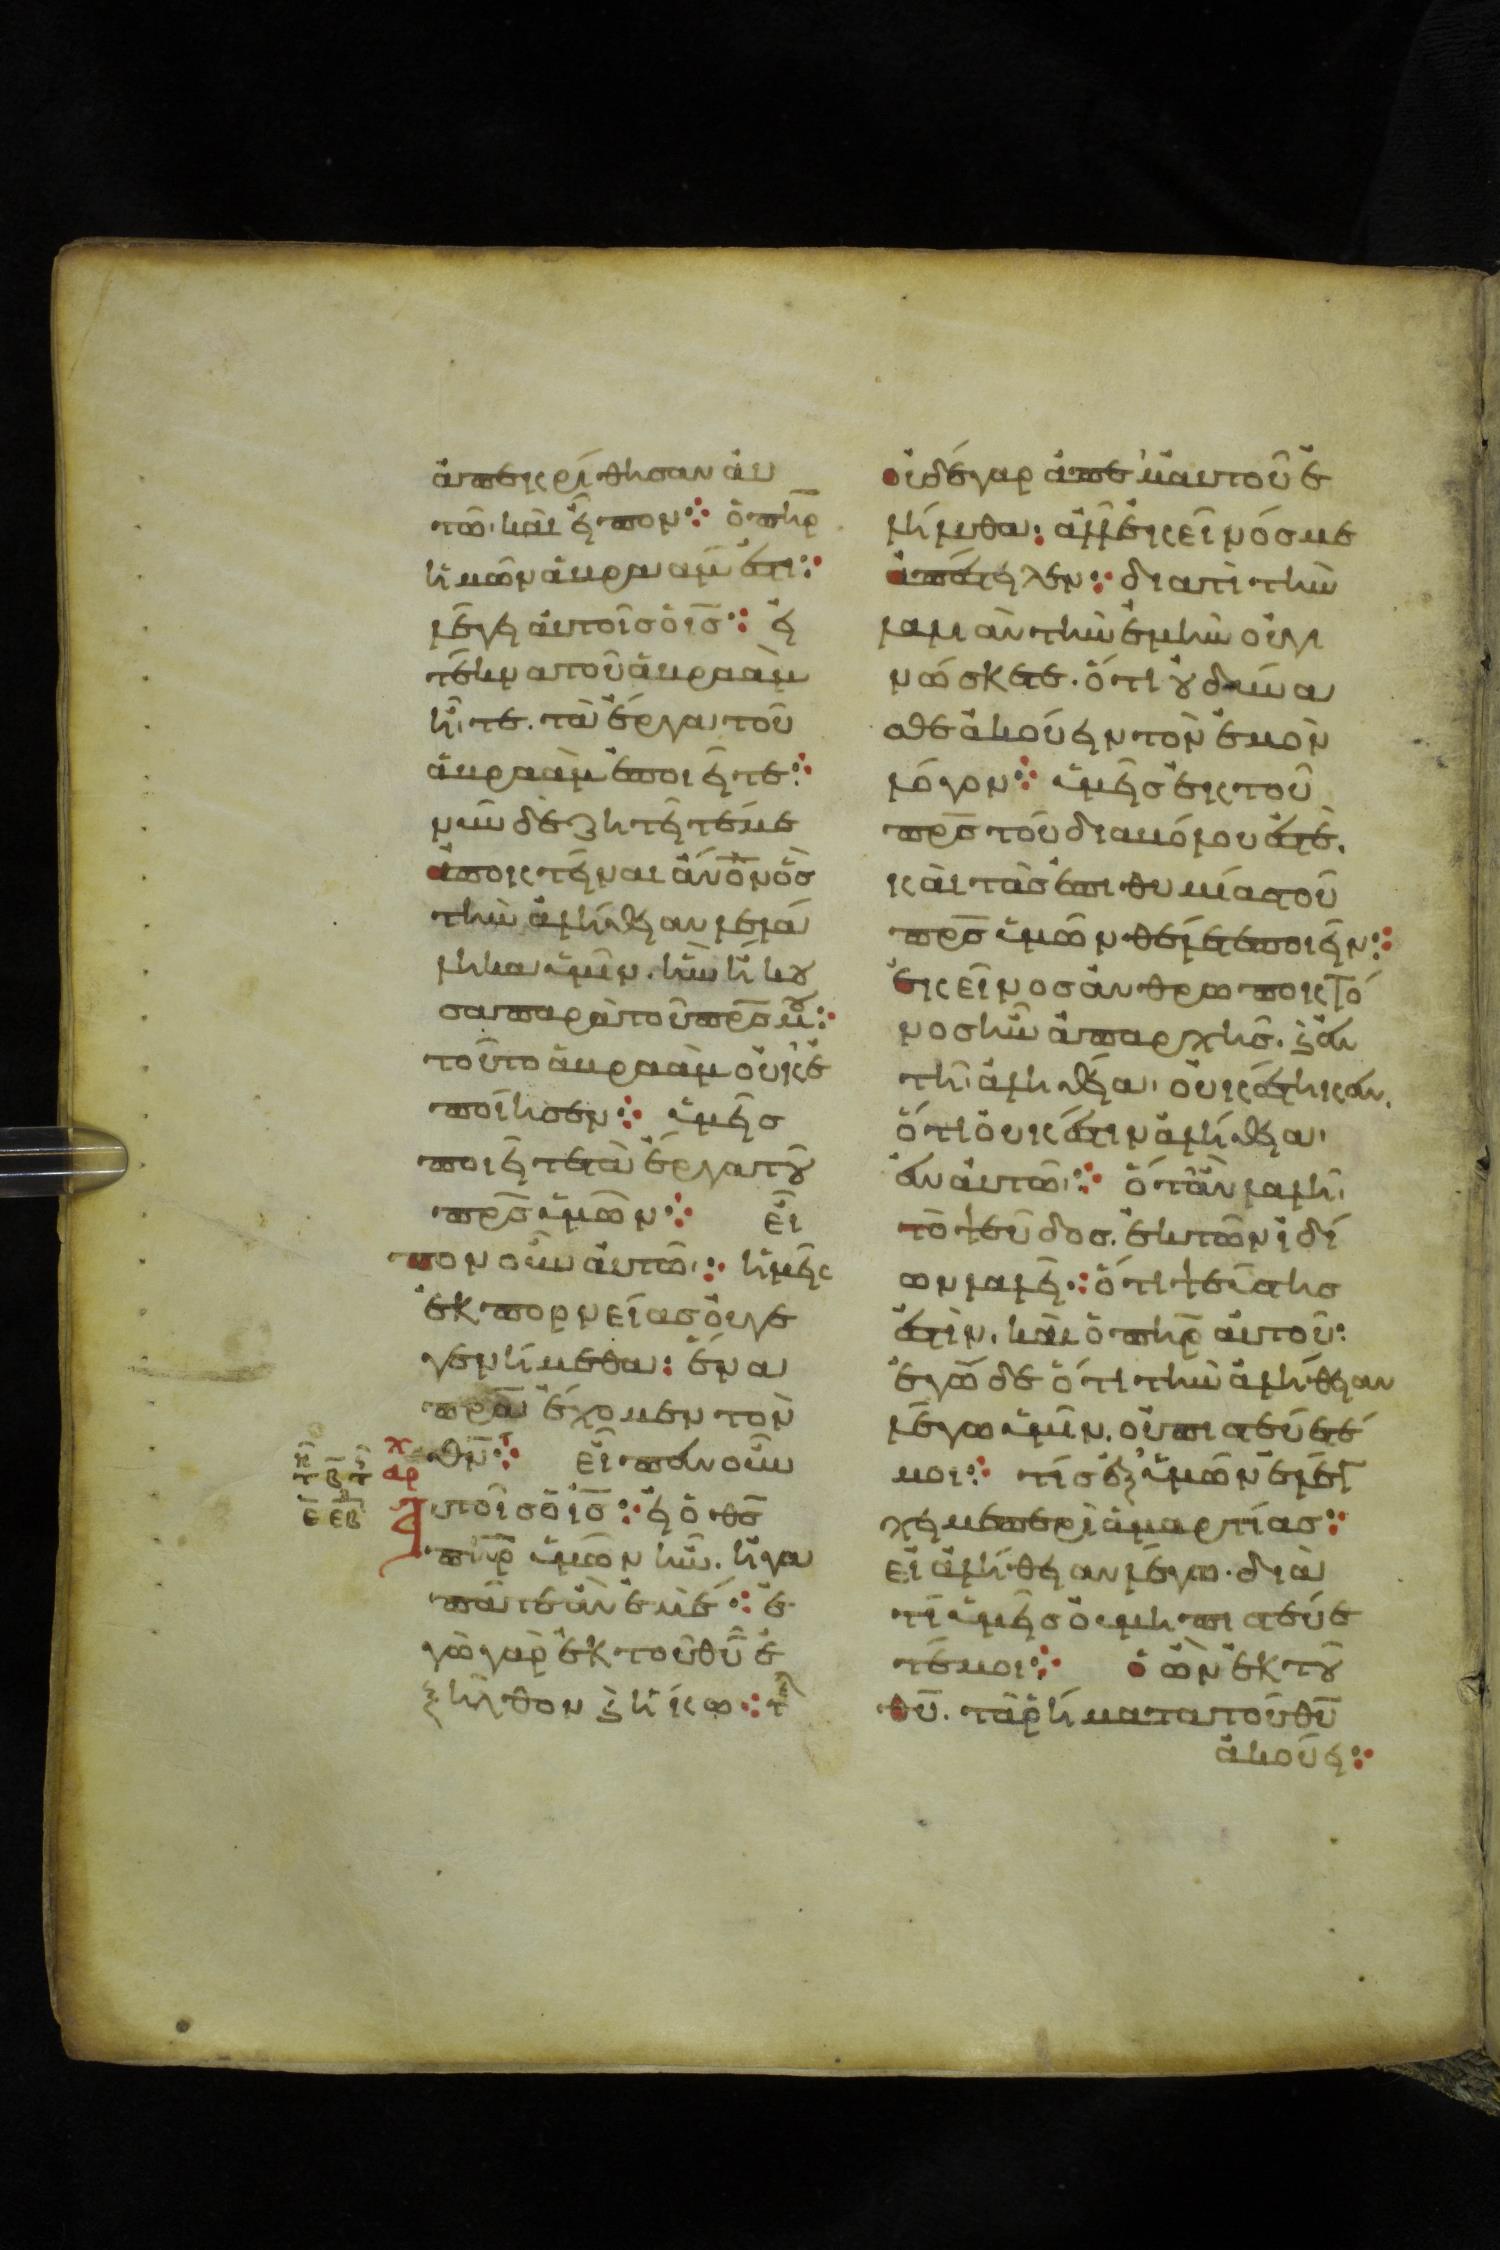 ἀπεκρίθησαν αὐ
τῶ· καὶ εἶπον· ὁ πηρ
ἡμῶν ἀβρααμ ἐστι·
λέγει αὐτοῖσ ὁ ισ· εἰ
τέκνα τοῦ ἀβραὰμ
ἦτε. τὰ ἔργα τοῦ
ἀβραὰμ ἐποιεῖτε·
νῦν δὲ ζητεῖτέ με
ἀποκτεῖναι ἀνον ὃσ
τὴν ἀλήθειαν λελά
ληκα ὑμῖν. ἣν ἤκου
σα παρὰ τοῦ πρσ μου·
τοῦτο ἀβραὰμ οὐκ ἐ
ποίησεν· ὑμεῖσ
ποιεῖτε τὰ ἔργα τοῦ
πρσ ὑμῶν· εἶ
πον οὖν αὐτῶ· ἡμεῖς
ἐκ πορνείασ οὐ γε
γενήμεθα· ἕνα
πρα ἔχομεν τὸν
θν· εἶπεν οὖν
χ
αρ
Αὐτοῖσ ὁ ισ· εἰ ὁ θσ
πηρ ὑμῶν ἦν. ἠγα
πᾶτε ἂν ἐμέ· ἐ
γὼ γὰρ ἐκ τοῦ θυ ἐ
ξῆλθον καὶ ἥκω·
οὐδὲ γαρ ἀπ' ἐμαυτοῦ ἐ
λήλυθα· ἀλλ' ἐκεῖνόσ με
ἀπέστειλεν· διατί τὴν
λαλιὰν τὴν ἐμὴν οὐ γι
νώσκετε. ὅτι οὐ δύνα
σθε ἀκούειν τὸν ἐμὸν
λόγον· ὑμεῖσ ἐκ τοῦ
πρσ τοῦ διαβόλου ἐστέ.
καὶ τὰσ ἐπιθυμίασ τοῦ
πρσ ὑμῶν θέλετε ποιεῖν·
ἐκεῖνοσ ἀνθρωποκτό
νοσ ἦν ἀπαρχῆσ. καὶ ἐν
τῆ ἀληθεία οὐκ έστηκεν.
ὅτι οὐκ ἔστιν ἀλήθεια
ἐν αὐτῶ· ὅταν λαλῆ
τὸ ψεῦδοσ. ἐκ τῶν ἰδί
ων λαλεῖ· ὅτι ψεύστησ
ἐστὶν. καὶ ὁ πηρ αὐτοῦ·
ἐγὼ δε ὅτι τὴν ἀλήθειαν
λέγω ὑμῖν. οὐ πιστεύετέ
μοι· τίσ ἐξ ὑμῶν ἐλέγ
χει με περὶ ἁμαρτίασ·
εἰ ἀλήθειαν λέγω. διὰ
τί ὑμεῖσ οὐ μὴ πιστεύε
τέ μοι· ὁ ὢν ἐκ τοῦ
θυ. τὰ ῥήματα τοῦ θυ
ἀκούει·